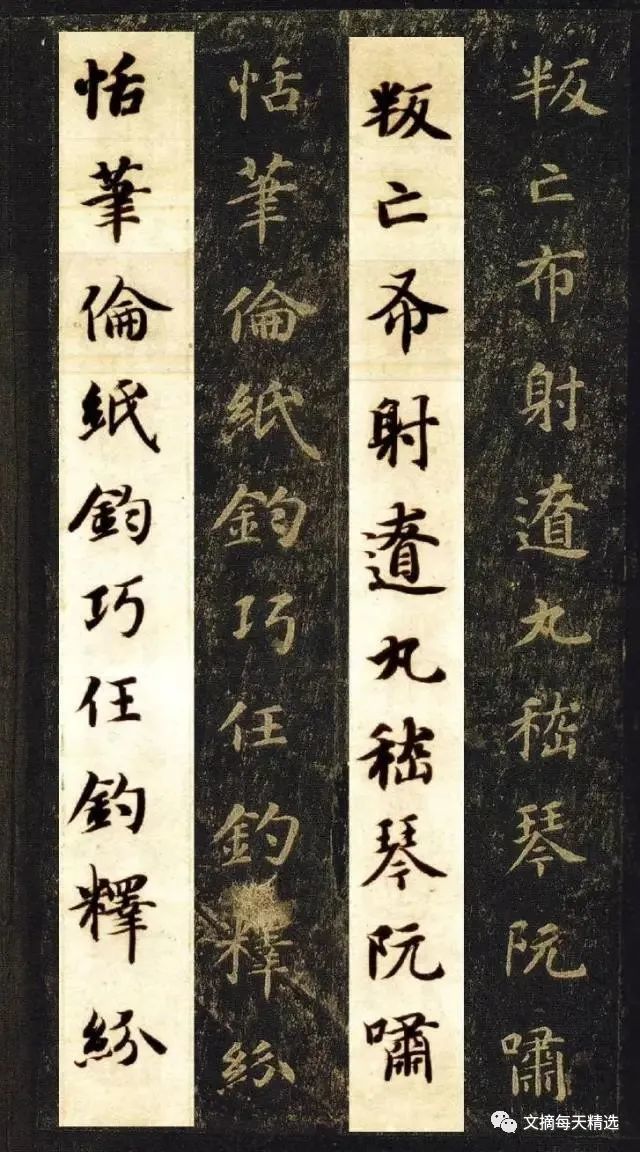 叛亡布射遼丸嵇琴阮嘯
叛亡布射遼丸嵇琴阮嘯
恬筆倫紙鈞巧任釣釋紛
恬筆倫紙鈞巧任釣釋紛
文摘每天精选